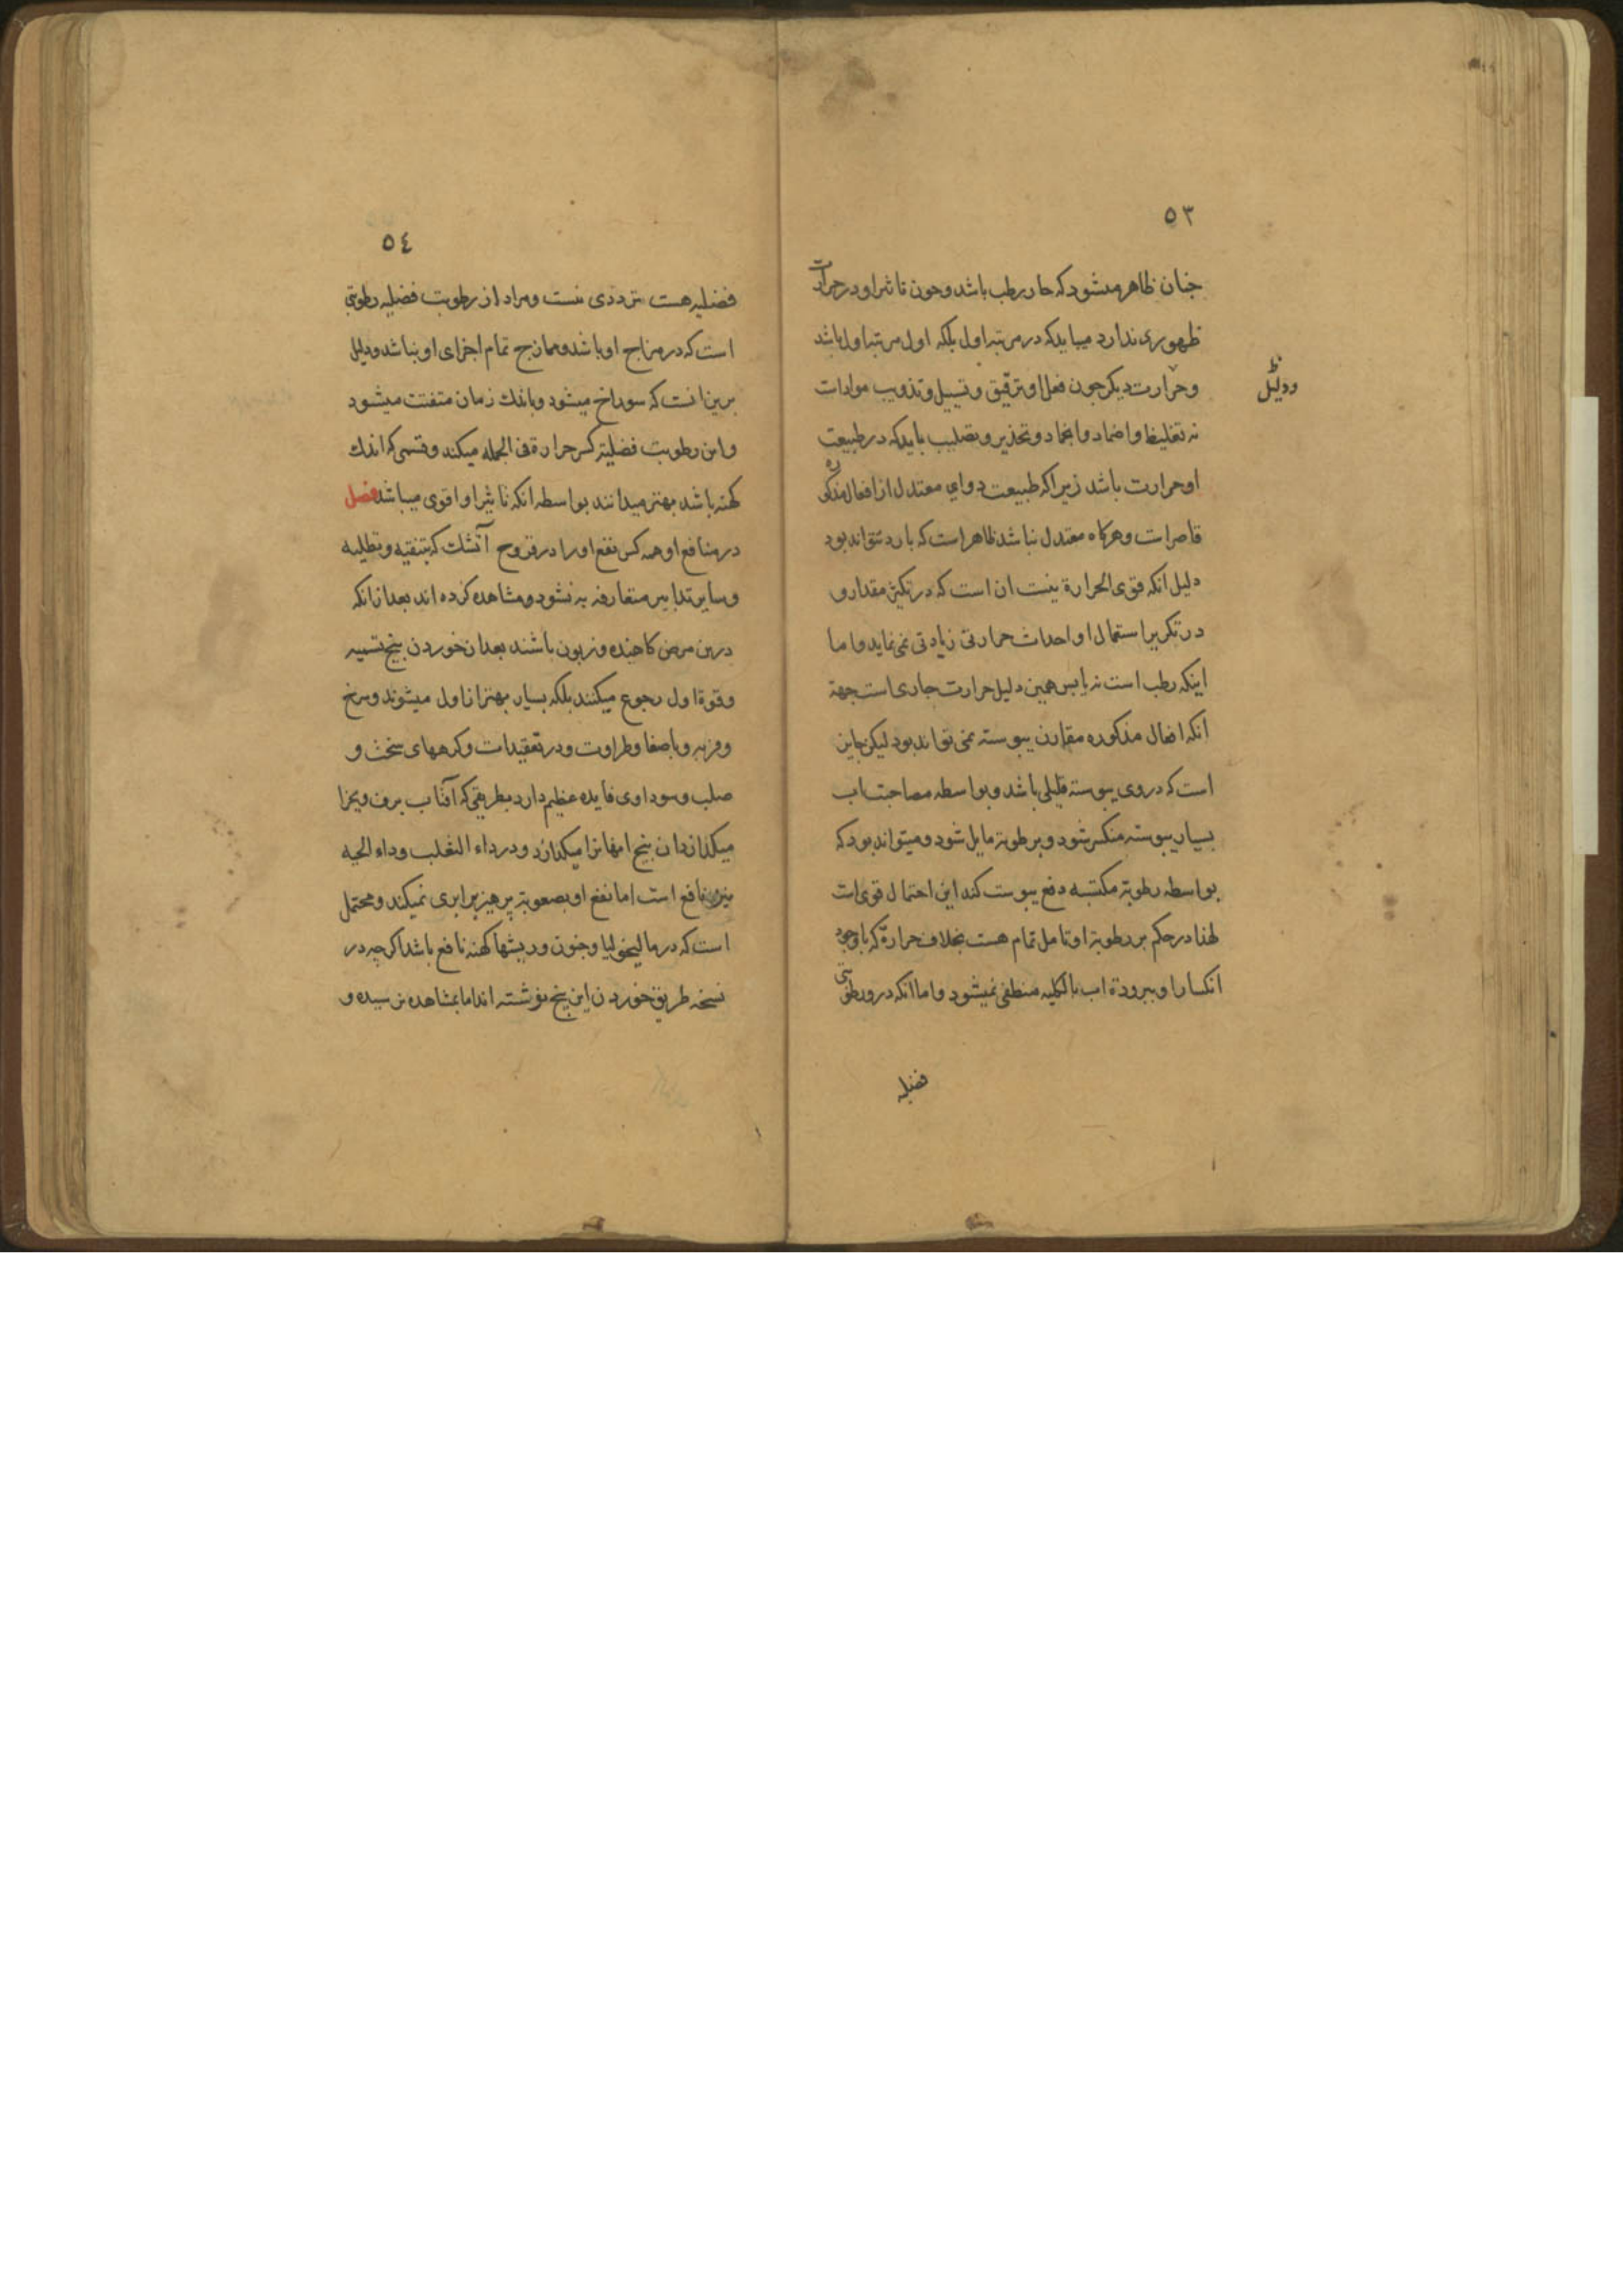 ٥٣
چنان ظاهر میشود که حار رطب باشد و چون تاثیر او در حرارت
ظهوری ندارد میباید که در مرتبه اول بلکه اول مرتبه اول باشد
و حرارت دیگر چون فعل او ترقیق و تسییل و تذویب مواد است
ودلیل
نه تغلیظ و اضماد و انجماد و تخدیر و تصلیب باید که در طبیعت
او حرارت باشد زیرا که طبیعت دوای معتدل از افعال مذکوره
قاصر است و هرگاه معتدل نباشد ظاهر است که بارد نتواند بود
دلیل انکه قوی الحرارة نیست ان است که در تکثیر مقدار و
در تکریر استعمال او احداث حرارتی زیادتی نمی نماید و اما
اینکه رطب است نه یابس همین دلیل حرارت جاری است جهة
انکه افعال مذکوره مقارن یبوسته نمی تواند بود لیکن
است که در وی یبوسته قلیلی باشد و بواسطه مصاحبت اب
بسیار یبوسته منکسر شود و برطوبة مایل شود و میتواند بود که
بواسطه رطوبة مکتسبه دفع یبوست کند این احتمال قوی است
لهذا در حکم بر رطوبة او تامل تمام هست بخلاف حرارة که باوجود
انکسار او ببرودة اب بالکلیه منطفی نمیشود و اما انکه درو رطوبتی
فضلیه
٥٤
فضلیه هست ترددی نیست و مراد از رطوبت فضلیه رطوبتی
است که در مزاج او باشد و ممازج تمام اجزای او نباشد و دلیل
برین انست که سوراخ میشود و باندك زمان متفتت میشود
و این رطوبت فضلیة کسر حرارة فی الجمله میکند و قسمی که اندك
کهنه باشد بهتر میدانند بواسطه انکه تاثیر او اقوی میباشد فصل
در منافع او همه کس نفع او را در قروح آتشك که بتنقیه و بطلیه
و سایر تدابیر متعارفه به نشود و مشاهده کرده اند بعد از انکه
درین مرض کاهیده و زبون باشند بعد از خوردن بیخ تسمیه
و قوة اول رجوع میکنند بلکه بسیار بهتر از اول میشوند و سرخ
و فربه و باصفا و طراوت و در تعقیدات و کرههای سخت و
صلب و سوداوی فایده عظیم دارد بطریقی که آفتاب برف و یخ را
میکدازد ان بیخ انها نرا میکدازد و در داء الثعلب و داء الحیه
نیز نافع است اما نفع او بصعوبة پرهیز برابری نمیکند و محتمل
است که در مالیخولیا و جنون و ریشها کهنه نافع باشد اگرچه در
نسخه طریق خوردن این بیخ نوشته اند اما بمشاهده نرسیده و